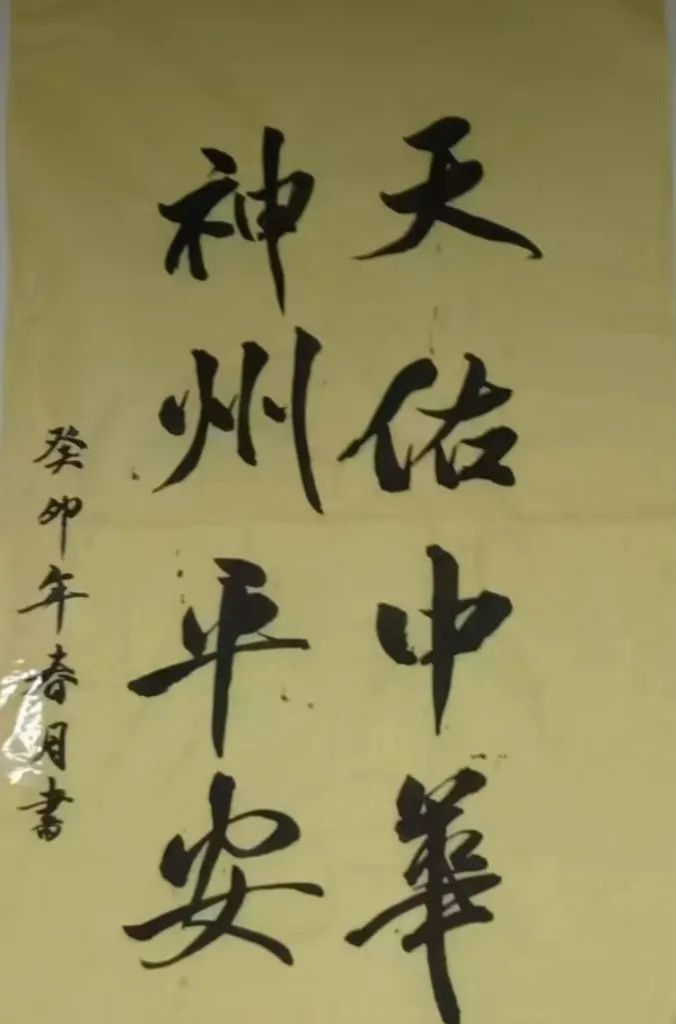 天佑中華
神州平安
癸卯年春月書